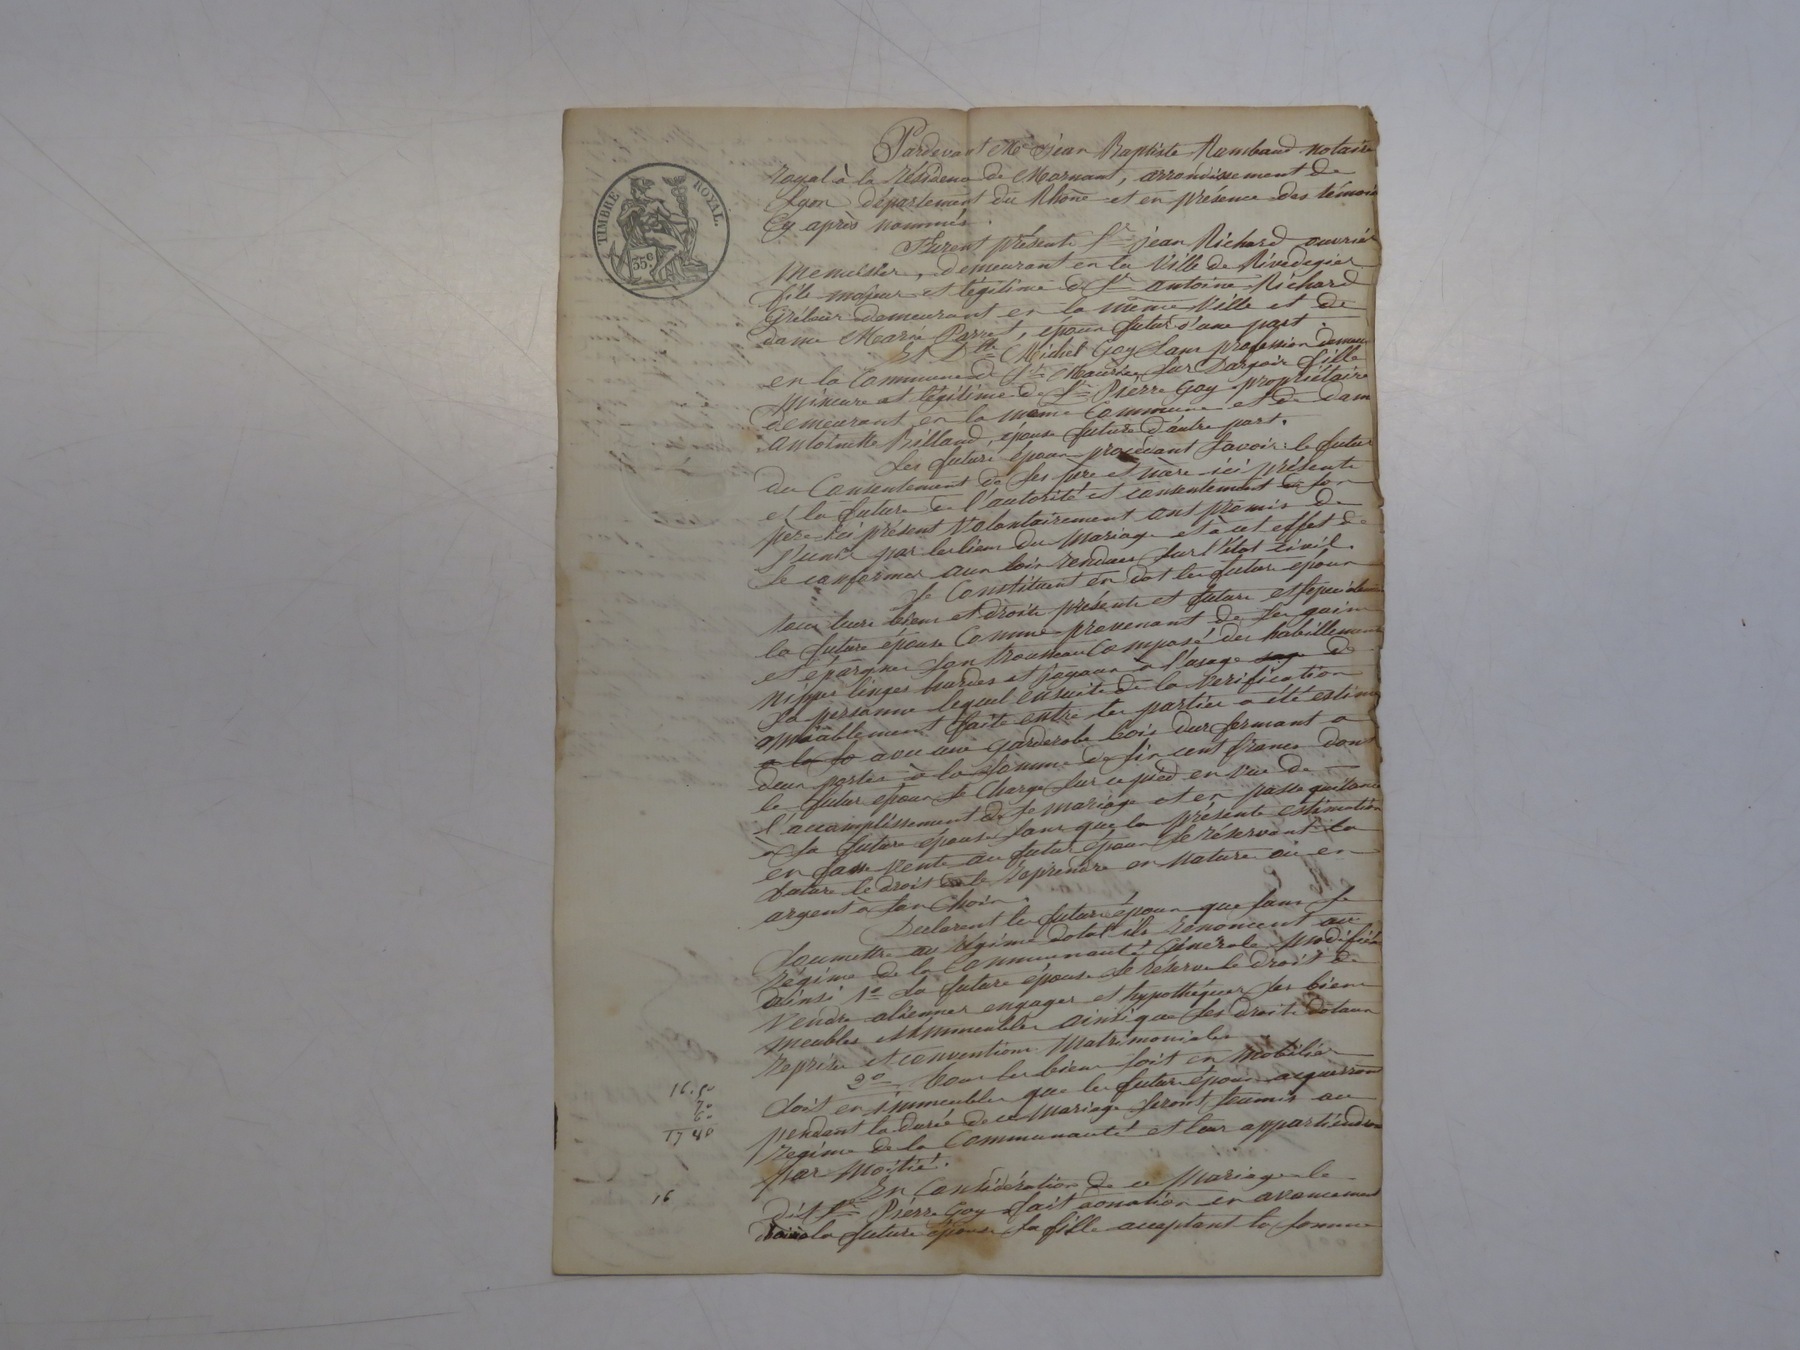 TIMBRE ROYAL
35c
Pardevant Me Jean Baptiste Rambaud notaire
royal à la résidence de Mornant, arrondissement de
Lyon département du Rhône et en présence des témoin
Cy après nommés.
Furent présents Sr Jean Richard ouvrier
menuisier, demeurant en la Ville de Rivedegier
fils majeur et légitime de Sr Antoine Richard
Crêleur demeurant en la même Ville et de
dame Marie Parret, époux futur d'une part.
Et Dlle Michel Goy sans profession demeu
en la Commune de St Maurice sur Dargoir fille
mineure et légitime de Sr Pierre Goy propriétaire
demeurant en la même Commune et de dam
Antoinette Billaud, épouse future d'autre part.
Les futurs époux procédant savoir: le futur
du Consentement de ses père et mère ici présents
et la future de l'autorité et consentement de son
père ici présent Volontairement ont promis de
s'unir par les liens du mariage et à cet effet de
se conformer aux lois rendues sur l'état civil.
Se Constituent en dot les futurs époux
tous leurs biens et droits présents et futurs et
la future épouse Comme provenant de ses gains
et épargnes son trousseau Composé des habillements
nippes linges hardes et joyaux à l'usage de
sa personne lequel ensuite de la Vérification
amiablement faite entre les parties a été estimé
a la so avec une garderobe bois dur fermant a
deux portes à la somme de six cent francs dont
le futur époux se Charge sur ce pied en Vue de
l'accomplissement de ce mariage et en passe quitance
a sa future épouse sans que la présente estimation
en fasse vente au futur époux se réservant la
future le droit de le reprendre en Nature ou en
argent à son choix.
Déclarent les futurs époux que sans se
soumettre au régime dotal ils renoncent au
régime de la communauté Générale modifié
ainsi 1o La future épouse se réserve le droit de
Vendre aliener engager et hypothéquer ses biens
meubles et immeubles ainsi que ses droits dotaux
reprises et conventions Matrimoniales
2o Tous les biens soit en mobilier
soit en immeubles que les futurs époux acquerront
pendant la durée de ce mariage seront soumis au
régime de la Communauté et leur appartiendron
par Moitié.
En Considération de ce Mariage le
dit Sr Pierre Goy fait donation en avancement
la future épouse sa fille acceptant la somme
17 40
16